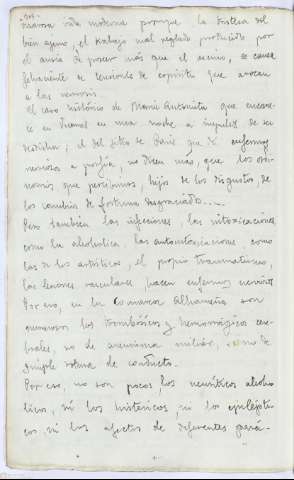 marosa vida moderna porque la tristeza del
bien ajeno, el trabajo mal reglado producido por
el ansia de poseer más que el vecino, es causa
fehaciente de tensiones de espíritu que avocan
a las neurosis.
El caso histórico de María Antonieta que encane-
ce en Varennes en una noche a impulsos de su
desdicha; el del sitio de París que dá enfermos
nerviosos a porfía, no dicen más, que los
que percibimos, hijos de los disgustos, de
los cambios de fortuna desgraciados....
Pero también las infecciones, las intoxicaciones
como la alcohólica, las autointoxicaciones, como
las de los artríticos, el propio traumatismo,
las lesiones vasculares hacen enfermos nerviosos
Por eso, en la comarca Alhameña son
numerosos los trombósicos y hemorrágicos cere-
brales, no de aneurisma miliar, sino de
simple rotura de conducto.
Por eso, no son pocos, los neuríticos alcohó-
licos, ni los histéricos, ni los epilépti-
cos, ni los afectos de diferentes pará-